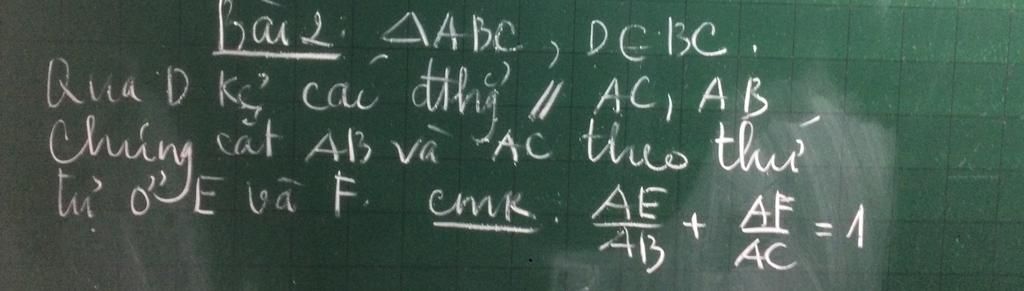 Bài 2: ΔABC, D∈BC.
Qua D kẻ các đthg // AC, AB
Chúng cắt AB và AC theo thứ
tự ở E và F. cmR: AE/AB + AF/AC = 1